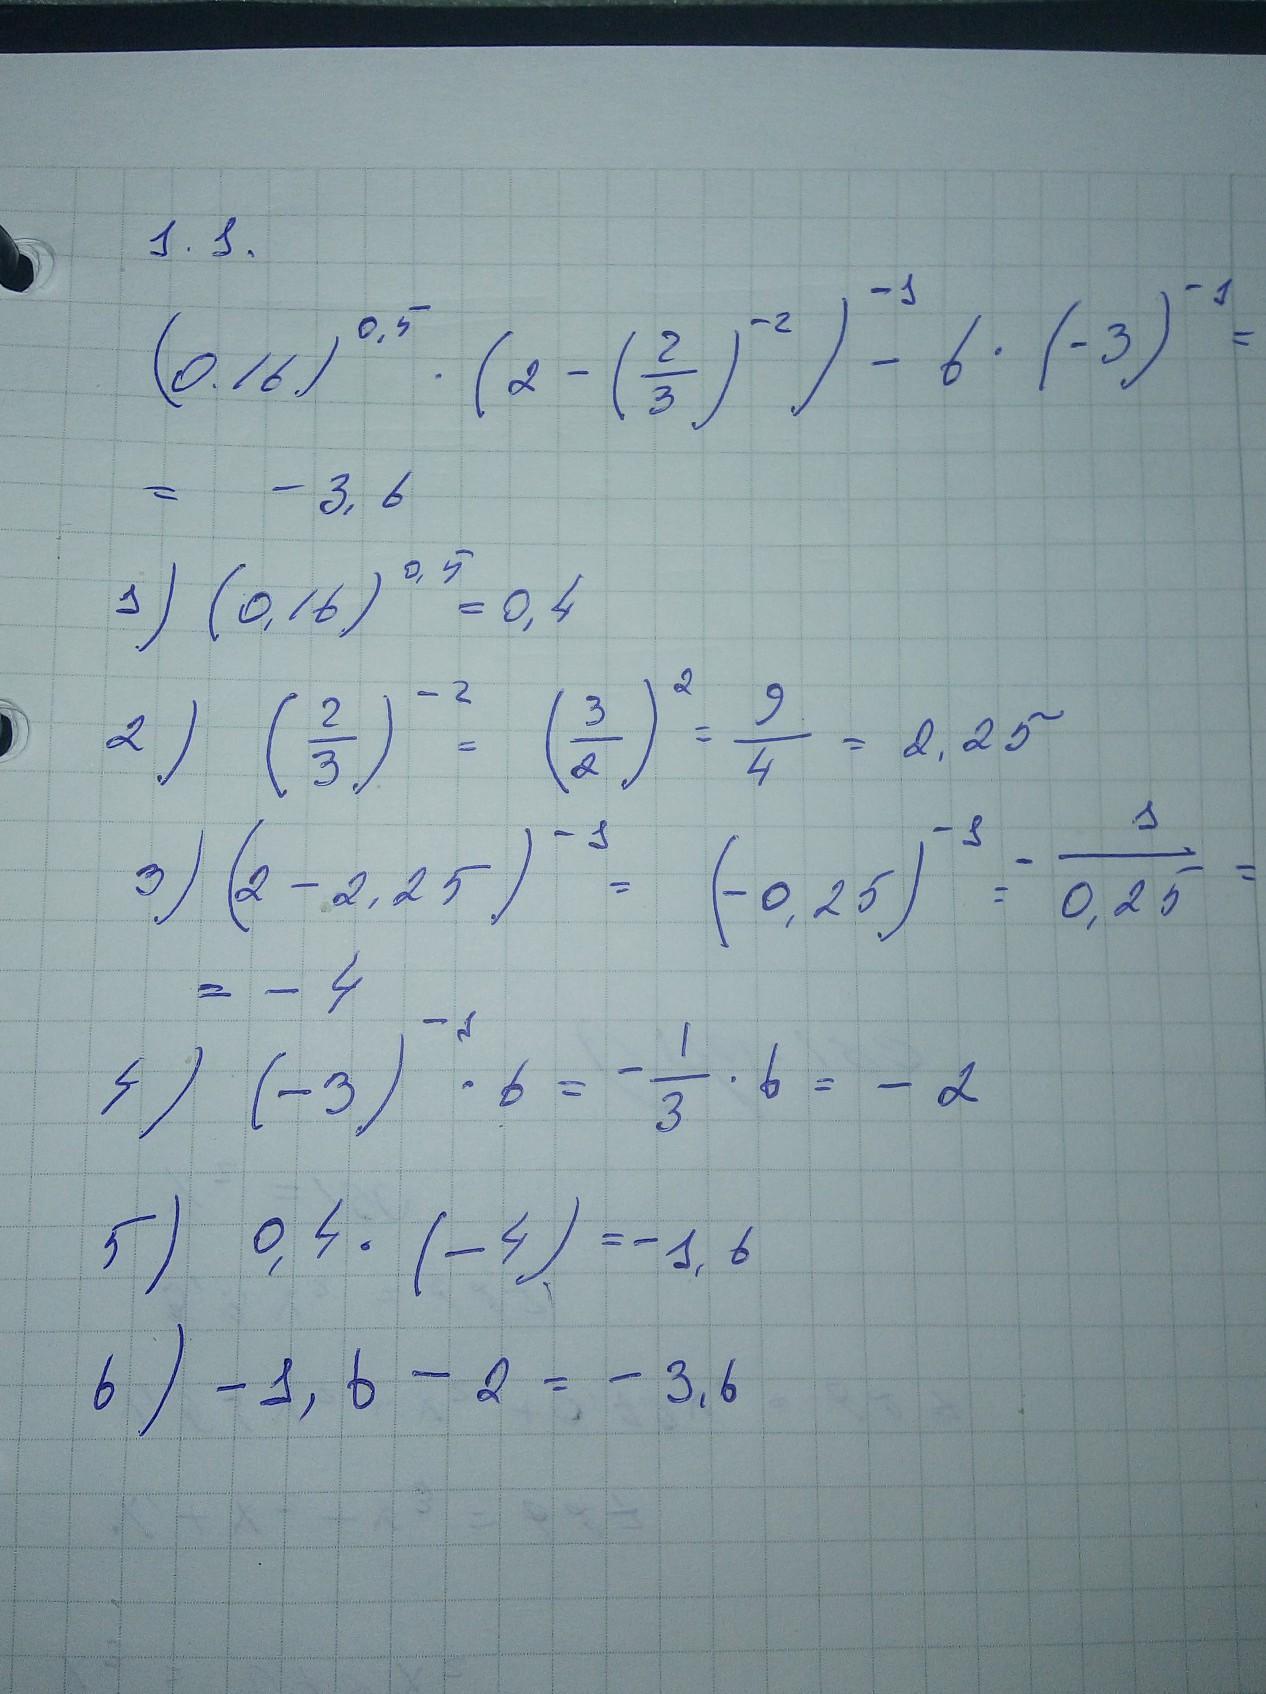 1.1.
(0.16)^0,5 · (2 - (2/3)^-2)^-1 - 6 · (-3)^-1 =
= -3,6
1) (0,16)^0,5 = 0,4
2) (2/3)^-2 = (3/2)^2 = 9/4 = 2,25
3) (2 - 2,25)^-1 = (-0,25)^-1 = - 1/0,25 =
= -4
4) (-3)^-1 · 6 = - 1/3 · 6 = -2
5) 0,4 · (-4) = -1,6
6) -1,6 - 2 = -3,6